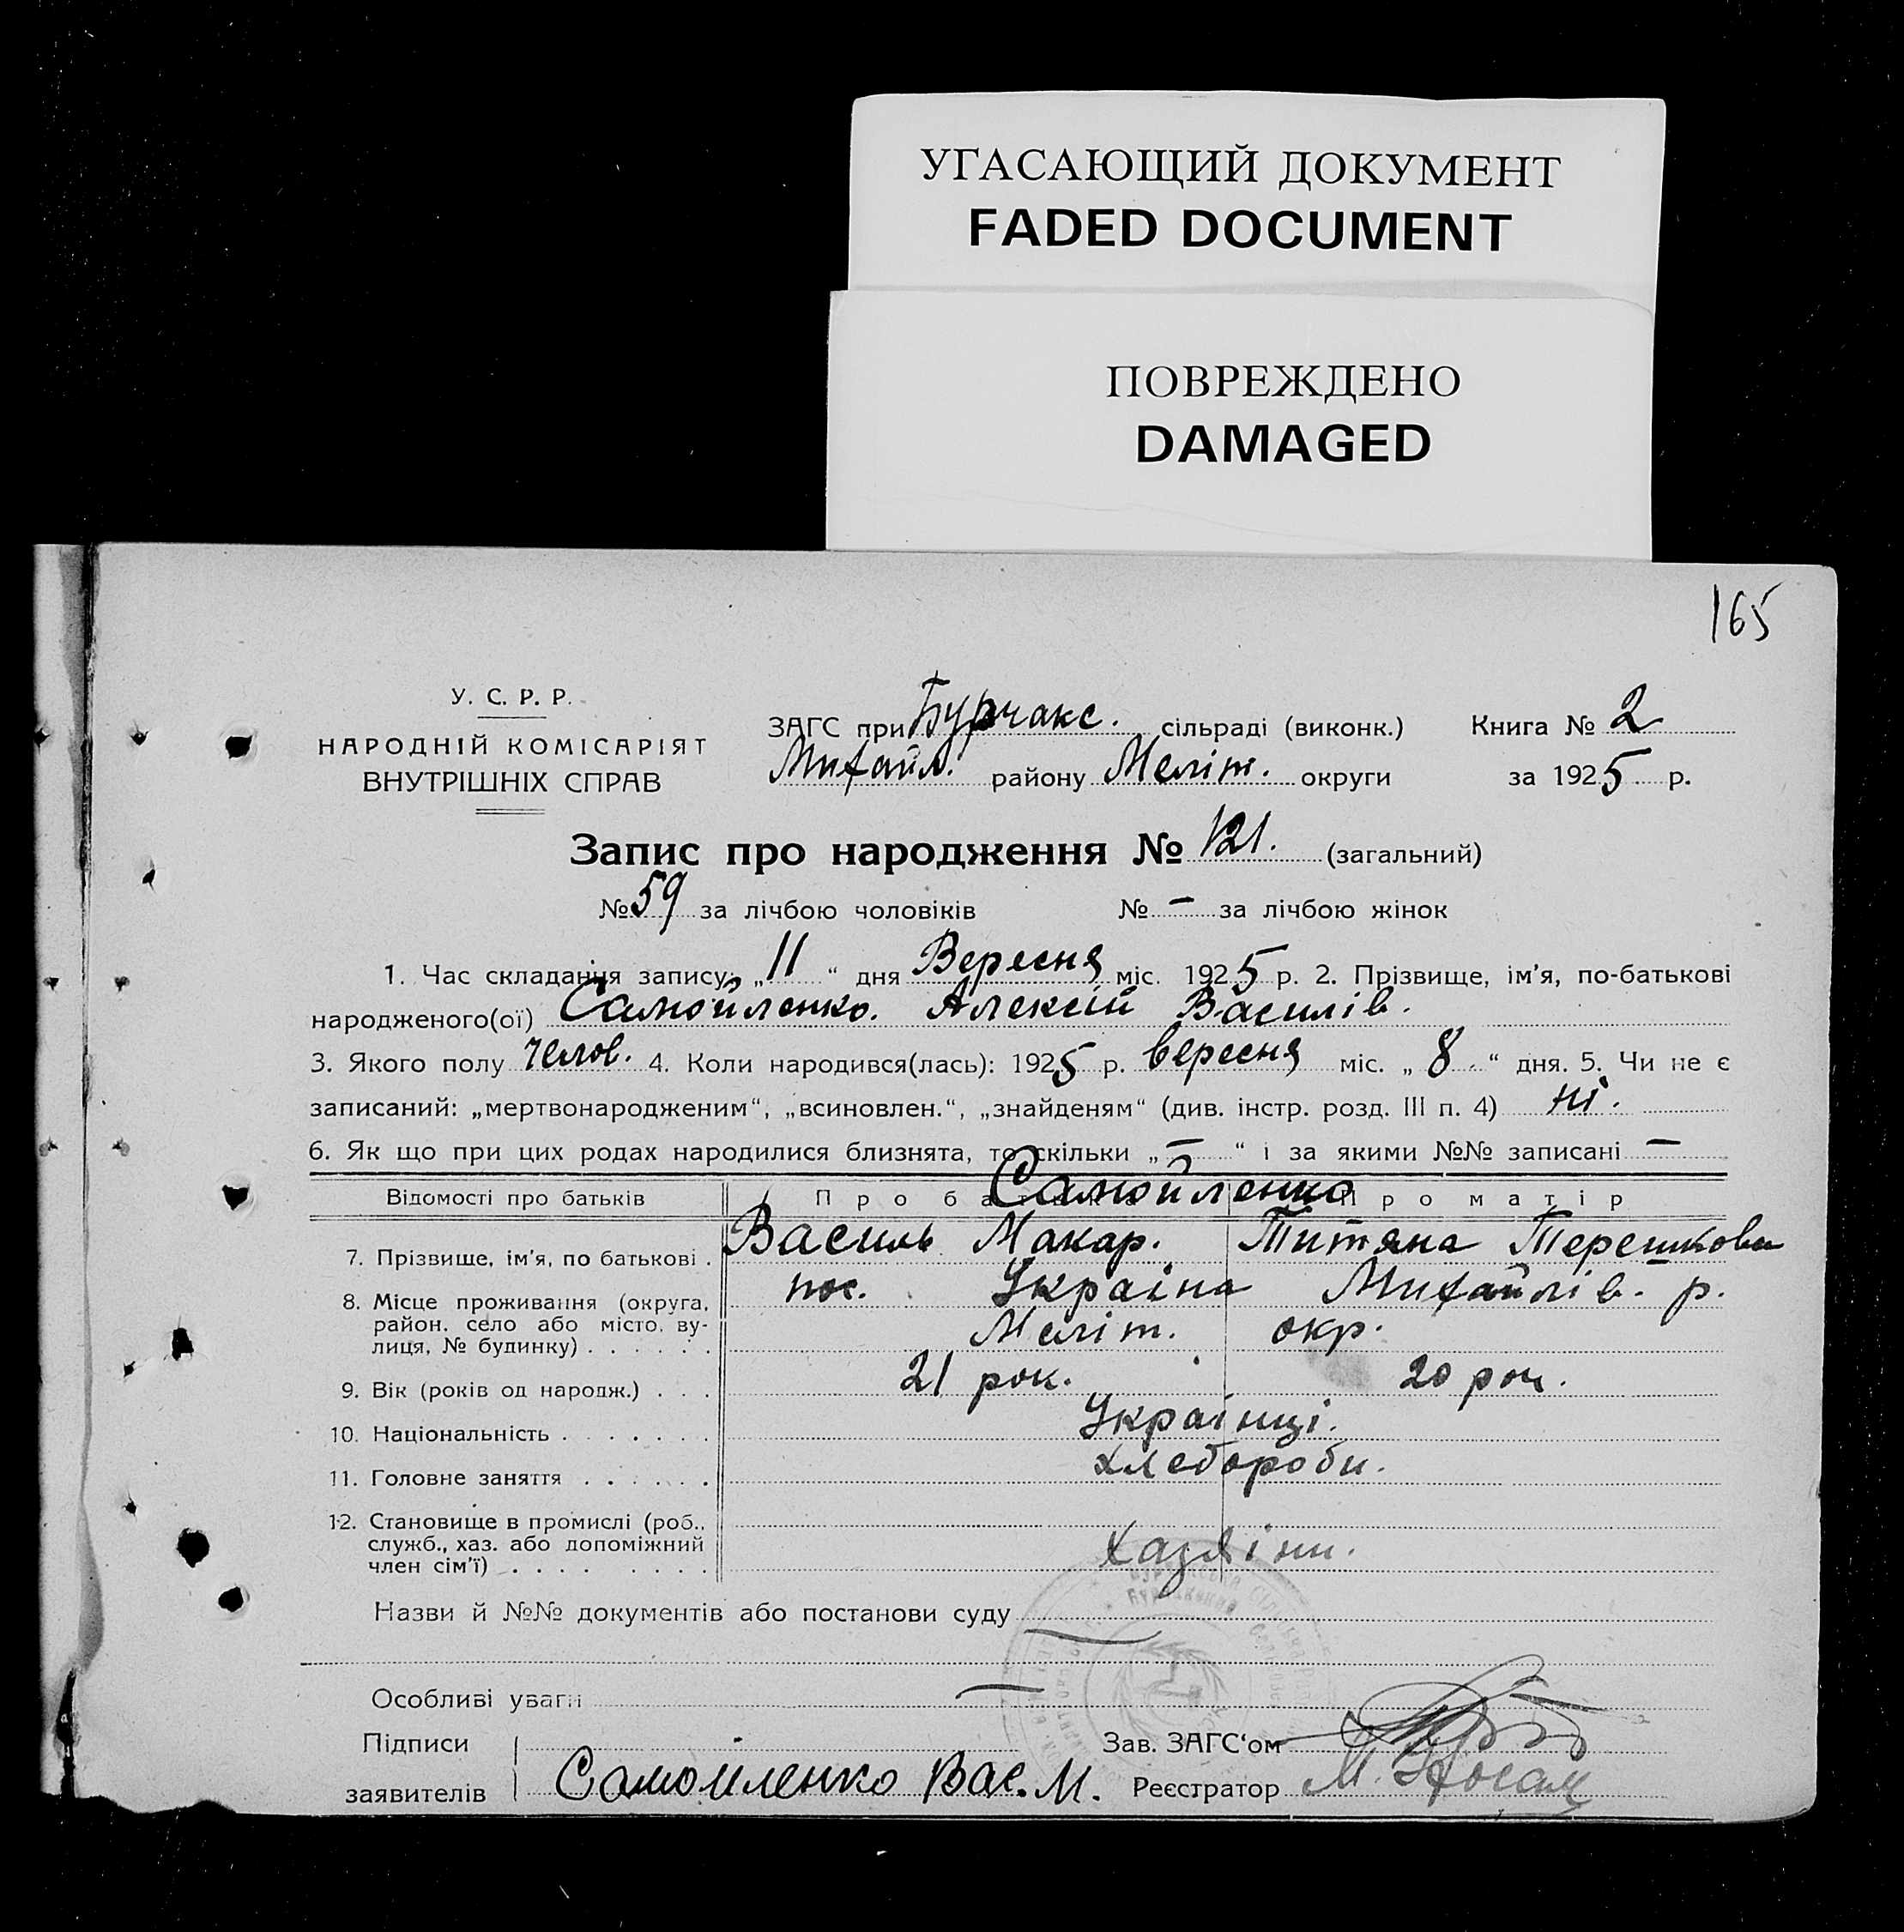 УГАСАЮЩИЙ ДОКУМЕНТ
FADED DOCUMENT
ПОВРЕЖДЕНО
DAMAGED
165
У. С. Р. Р.
НАРОДНІЙ КОМІСАРІЯТ
ВНУТРІШНІХ СПРАВ
ЗАГС при Бурчакс. сільраді (виконк.) Книга № 2
Михайл. району Меліт. округи за 1925 р.
Запис про народження № 121. (загальний)
№ 59 за лічбою чоловіків № — за лічбою жінок
1. Час складання запису: „11“ дня Вересня міс. 1925 р. 2. Прізвище, ім’я, по-батькові
народженого(ої) Самойленко. Алексій Василів.
3. Якого полу челов. 4. Коли народився(лась): 1925 р. вересня міс. „8“ дня. 5. Чи не є
записаний: „мертвонародженим“, „всиновлен.“, „знайденям“ (див. інстр. розд. III п. 4) ні.
6. Як що при цих родах народилися близнята, то скільки „—“ і за якими №№ записані —
Самойленко
Відомості про батьків Про батька Про матір
7. Прізвище, ім’я, по батькові . Василь Макар. Титяна Терешкова
8. Місце проживання (округа, район, село або місто, вулиця, № будинку) . . . . . . пос. Україна Михайлів. р.
Меліт. окр.
9. Вік (років од народж.) . . . 21 рок. 20 рок.
10. Національність . . . . . . . Українці.
11. Головне заняття . . . . . . хлебороби.
12. Становище в промислі (роб., служб., хаз. або допоміжний член сім’ї) . . . . . . . . Хазяіни.
Назви й №№ документів або постанови суду —
Особливі уваги —
Підписи Зав. ЗАГС‘ом
заявителів Самойленко Вас. М. Реєстратор М.